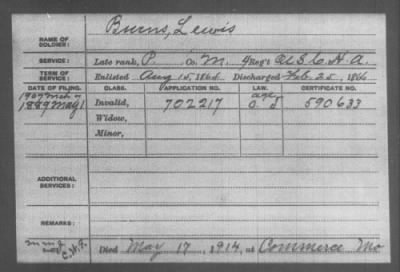 Burns, Lewis
NAME OF SOLDIER:
SERVICE: Late rank, P. Co. M, 4 Reg't U.S.C.H.A.
TERM OF SERVICE: Enlisted Aug 15, 1864, Discharged Feb. 25, 1866
DATE OF FILING. CLASS. APPLICATION NO. LAW. CERTIFICATE NO.
1907 Mch
1889 May 1 Invalid, 702217 age 590633
Widow,
Minor,
ADDITIONAL SERVICES:
REMARKS:
C.H.F.
Died May 17, 1914, at Commerce Mo